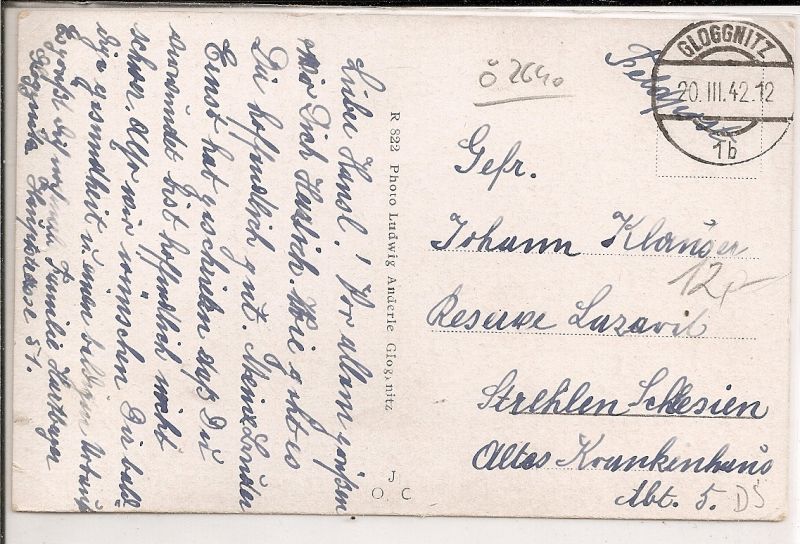 Liebe Hansl! Vor allem grüßen
wir Dich Herzlich. Wie geht es
Dir hoffendlich gut. Meine Brüder
Ernst hat geschrieben daß Du
verwundet bist hoffendlich nicht
schwer. Also wir wünschen Dir bald
dige gesundheit u. einen baldigen Urlaub
Es grüßt Dich vielmals Familie Hartberger
Gloggnitz 51.
R 822 Photo Ludwig Anderle Gloggnitz
J
O C
ö 2640
Feldpost
GLOGGNITZ
20.III.42.12
1b
Gefr.
Johann Klauser
12,-
Reserve Lazarit
Strehlen Schlesien
Altes Krankenhaus
Abt. 5. DS